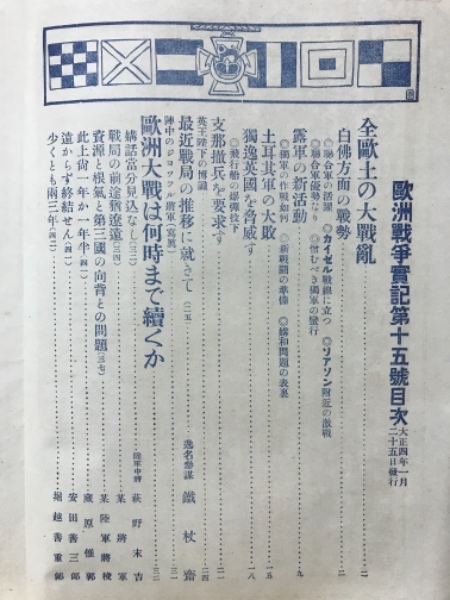 歐洲戰爭實記第十五號目次
大正四年一月
二十五日發行
全歐土の大戰亂
白佛方面の戰勢
◎聯合軍の活躍 ◎カイゼル戰線に立つ ◎ソアソン附近の激戰
◎聯合軍優勢なり ◎憎むべき獨軍の蠻行
露軍の新活動
◎獨軍の作戰如何 ◎新戰鬪の準備 ◎媾和問題の表裏
土耳其軍の大敗
獨逸英國を脅威す
◎飛行船の爆彈投下
支那撤兵を要求す
英王陛下の博識
最近戰局の推移に就きて (二五)
逸名參謀 鐵杖齋
陣中のジヨツフル將軍(寫眞)
歐洲大戰は何時まで續くか
媾話當分見込なし(三二) 陸軍中將 萩野末吉
戰局の前途猶遼遠(三四) 某將軍
資源と根氣と第三國の向背との問題(三七) 某陸軍將校
此上尚一年か一年半(四一) 藏原惟郭
遠からず終結せん(四一) 安田善三郎
少くとも兩三年(四二) 堀越善重郎